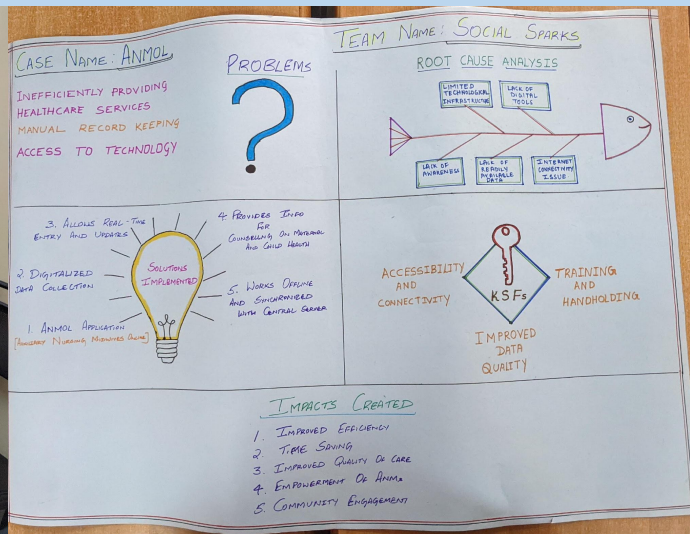 CASE NAME: ANMOL
TEAM NAME: SOCIAL SPARKS
PROBLEMS
INEFFICIENTLY PROVIDING
HEALTHCARE SERVICES
MANUAL RECORD KEEPING
ACCESS TO TECHNOLOGY
?
ROOT CAUSE ANALYSIS
LIMITED
TECHNOLOGICAL
INFRASTRUCTURE
LACK OF
DIGITAL
TOOLS
LACK OF
AWARENESS
LACK OF
READILY
AVAILABLE
DATA
INTERNET
CONNECTIVITY
ISSUE
SOLUTIONS
IMPLEMENTED
1. ANMOL APPLICATION
[AUXILIARY NURSING MIDWIVES ONLINE]
2. DIGITALIZED
DATA COLLECTION
3. ALLOWS REAL-TIME
ENTRY AND UPDATES
4. PROVIDES INFO
FOR
COUNSELLING ON MATERNAL
AND CHILD HEALTH
5. WORKS OFFLINE
AND SYNCHRONIZED
WITH CENTRAL SERVER
KSFs
ACCESSIBILITY
AND
CONNECTIVITY
TRAINING
AND
HANDHOLDING
IMPROVED
DATA
QUALITY
IMPACTS CREATED
1. IMPROVED EFFICIENCY
2. TIME SAVING
3. IMPROVED QUALITY OF CARE
4. EMPOWERMENT OF ANMs
5. COMMUNITY ENGAGEMENT